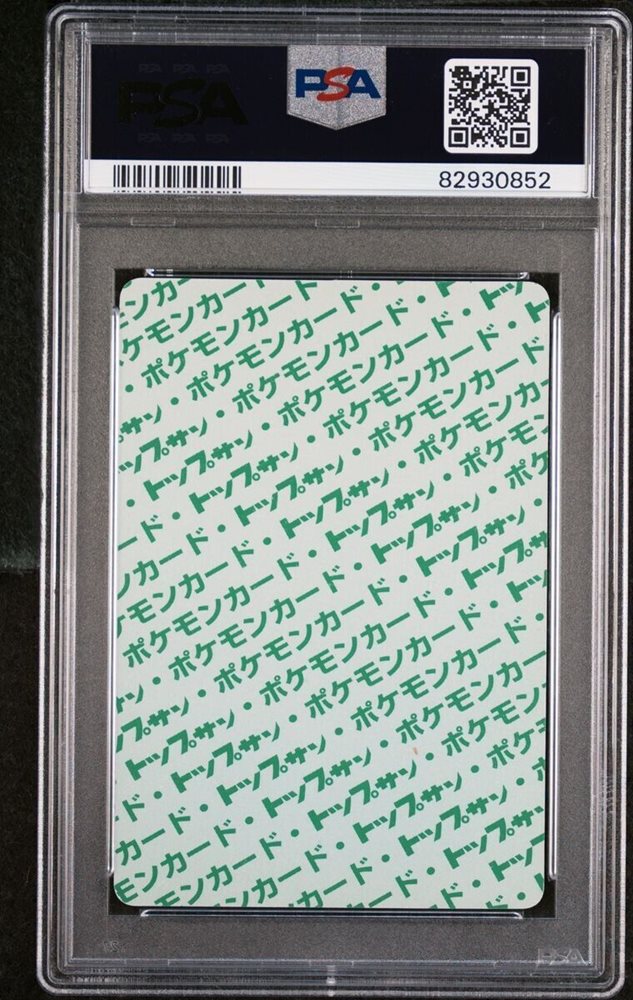 PSA
PSA
82930852
ンカー
ケモンカード
・ポケモンカード・
サン・ポケモンカード・トッ
ップサン・ポケモンカード・ト
・トップサン・ポケモンカード
ード・トップサン・ポケモン
ンカード・トップサン・ポケ
ケモンカード・トップサン・
ポケモンカード・トップサン
・ポケモンカード・トッ
サン・ポケモンカード・
ップサン・ポケモンカー
・トップサン・ポケモン
ド・トップサン・ポケ
カード・トップサン・
モンカード・トップサン
ンカード・トッ
PSA